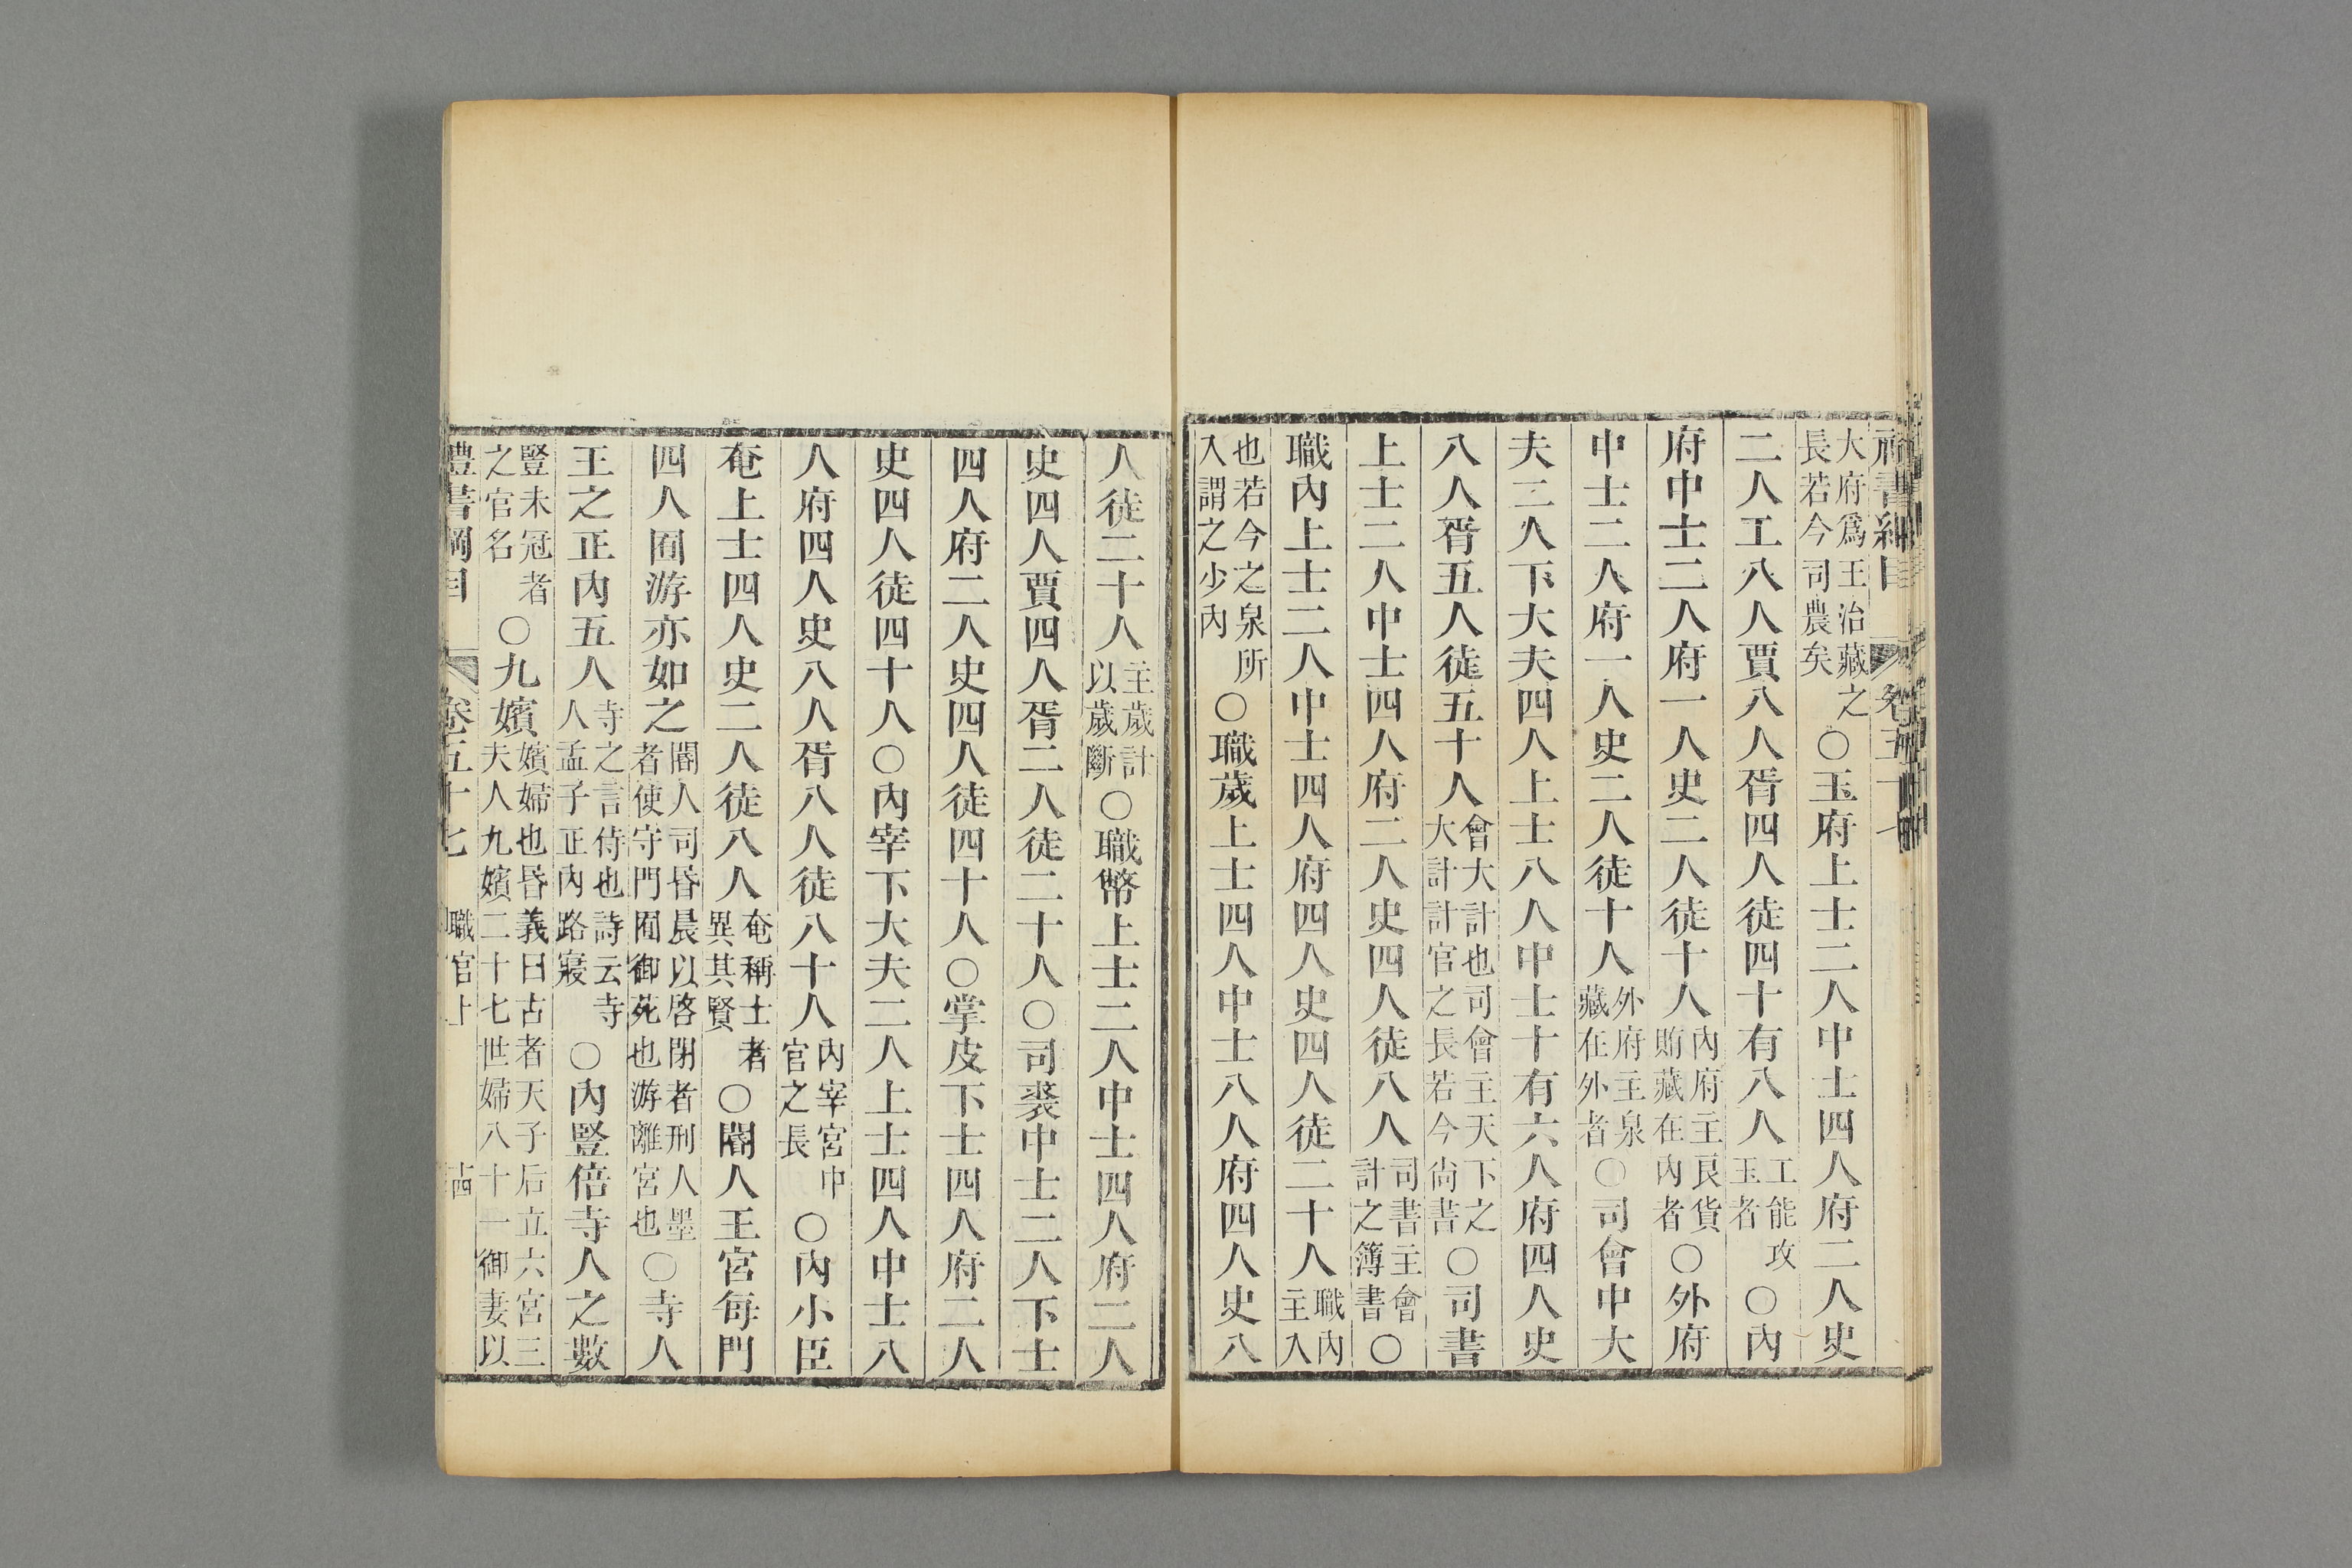 大府爲王治藏之長若今司農矣○玉府上士二人中士四人府二人史
二人工八人賈八人胥四人徒四十有八人工能攻玉者○內
府中士二人府一人史二人徒十人內府主良貨賄藏在內者○外府
中士二人府一人史二人徒十人外府主泉藏在外者○司會中大
夫二人下大夫四人上士八人中士十有六人府四人史
八人胥五人徒五十人會大計也司會主天下之大計計官之長若今尚書○司書
上士二人中士四人府二人史四人徒八人司書主會計之簿書○
職內上士二人中士四人府四人史四人徒二十人職內主入
也若今之泉所入謂之少內○職歲上士四人中士八人府四人史八
人徒二十人主歲計以歲斷○職幣上士二人中士四人府二人
史四人賈四人胥二人徒二十人○司裘中士二人下士
四人府二人史四人徒四十人○掌皮下士四人府二人
史四人徒四十人○內宰下大夫二人上士四人中士八
人府四人史八人胥八人徒八十人內宰宮中官之長○內小臣
奄上士四人史二人徒八人奄稱士者異其賢○閽人王宮每門
四人囿游亦如之閽人司昏晨以啓閉者刑人墨者使守門囿御苑也游離宮也○寺人
王之正內五人寺之言侍也詩云寺人孟子正內路寢○內豎倍寺人之數
豎未冠者之官名○九嬪嬪婦也昏義曰古者天子后立六宮三夫人九嬪二十七世婦八十一御妻以
禮書綱目 卷五十七 職官上 十四